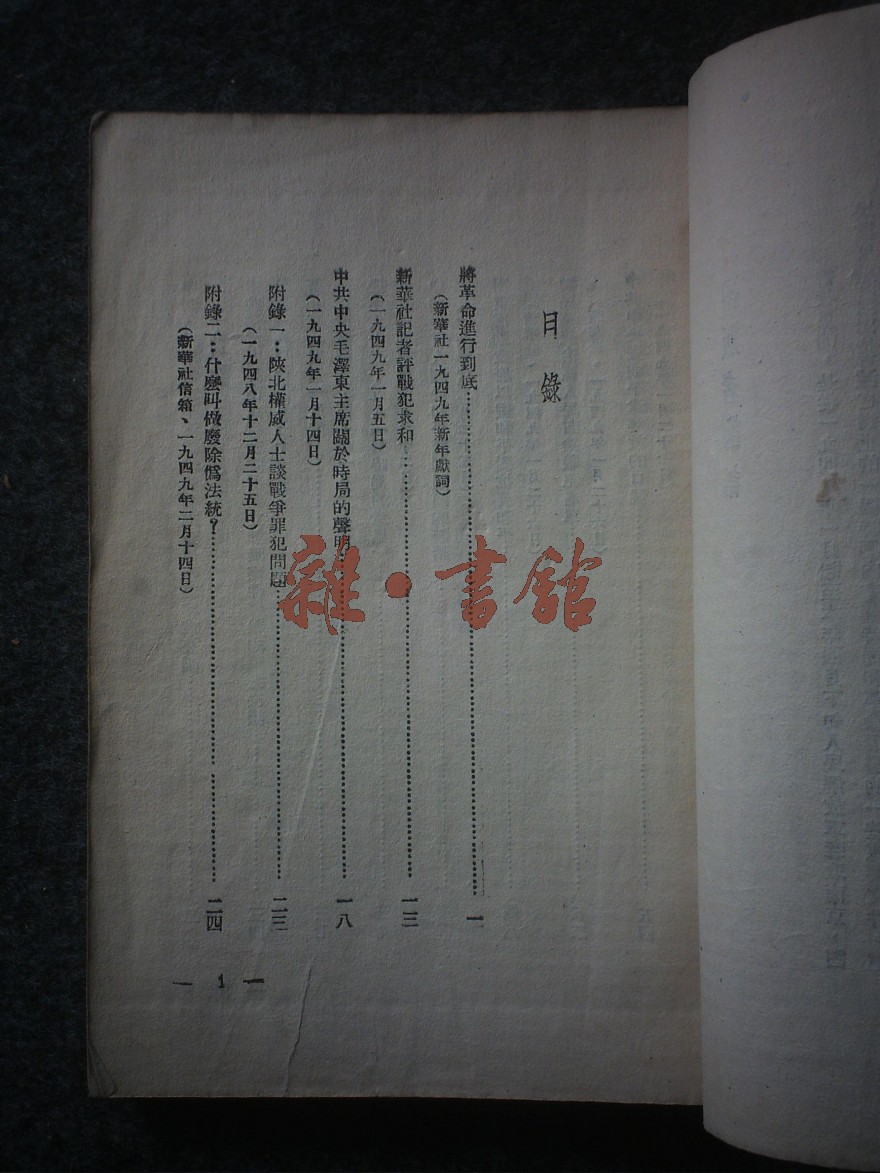 目錄
將革命進行到底…………………………一
(新華社一九四九年新年獻詞)
新華社記者評戰犯求和…………………………一三
(一九四九年一月五日)
中共中央毛澤東主席關於時局的聲明…………………………一八
(一九四九年一月十四日)
附錄一:陝北權威人士談戰爭罪犯問題…………………………二三
(一九四八年十二月二十五日)
附錄二:什麼叫做廢除僞法統?…………………………二四
(新華社信箱、一九四九年二月十四日)
— 1 —
雜·書館